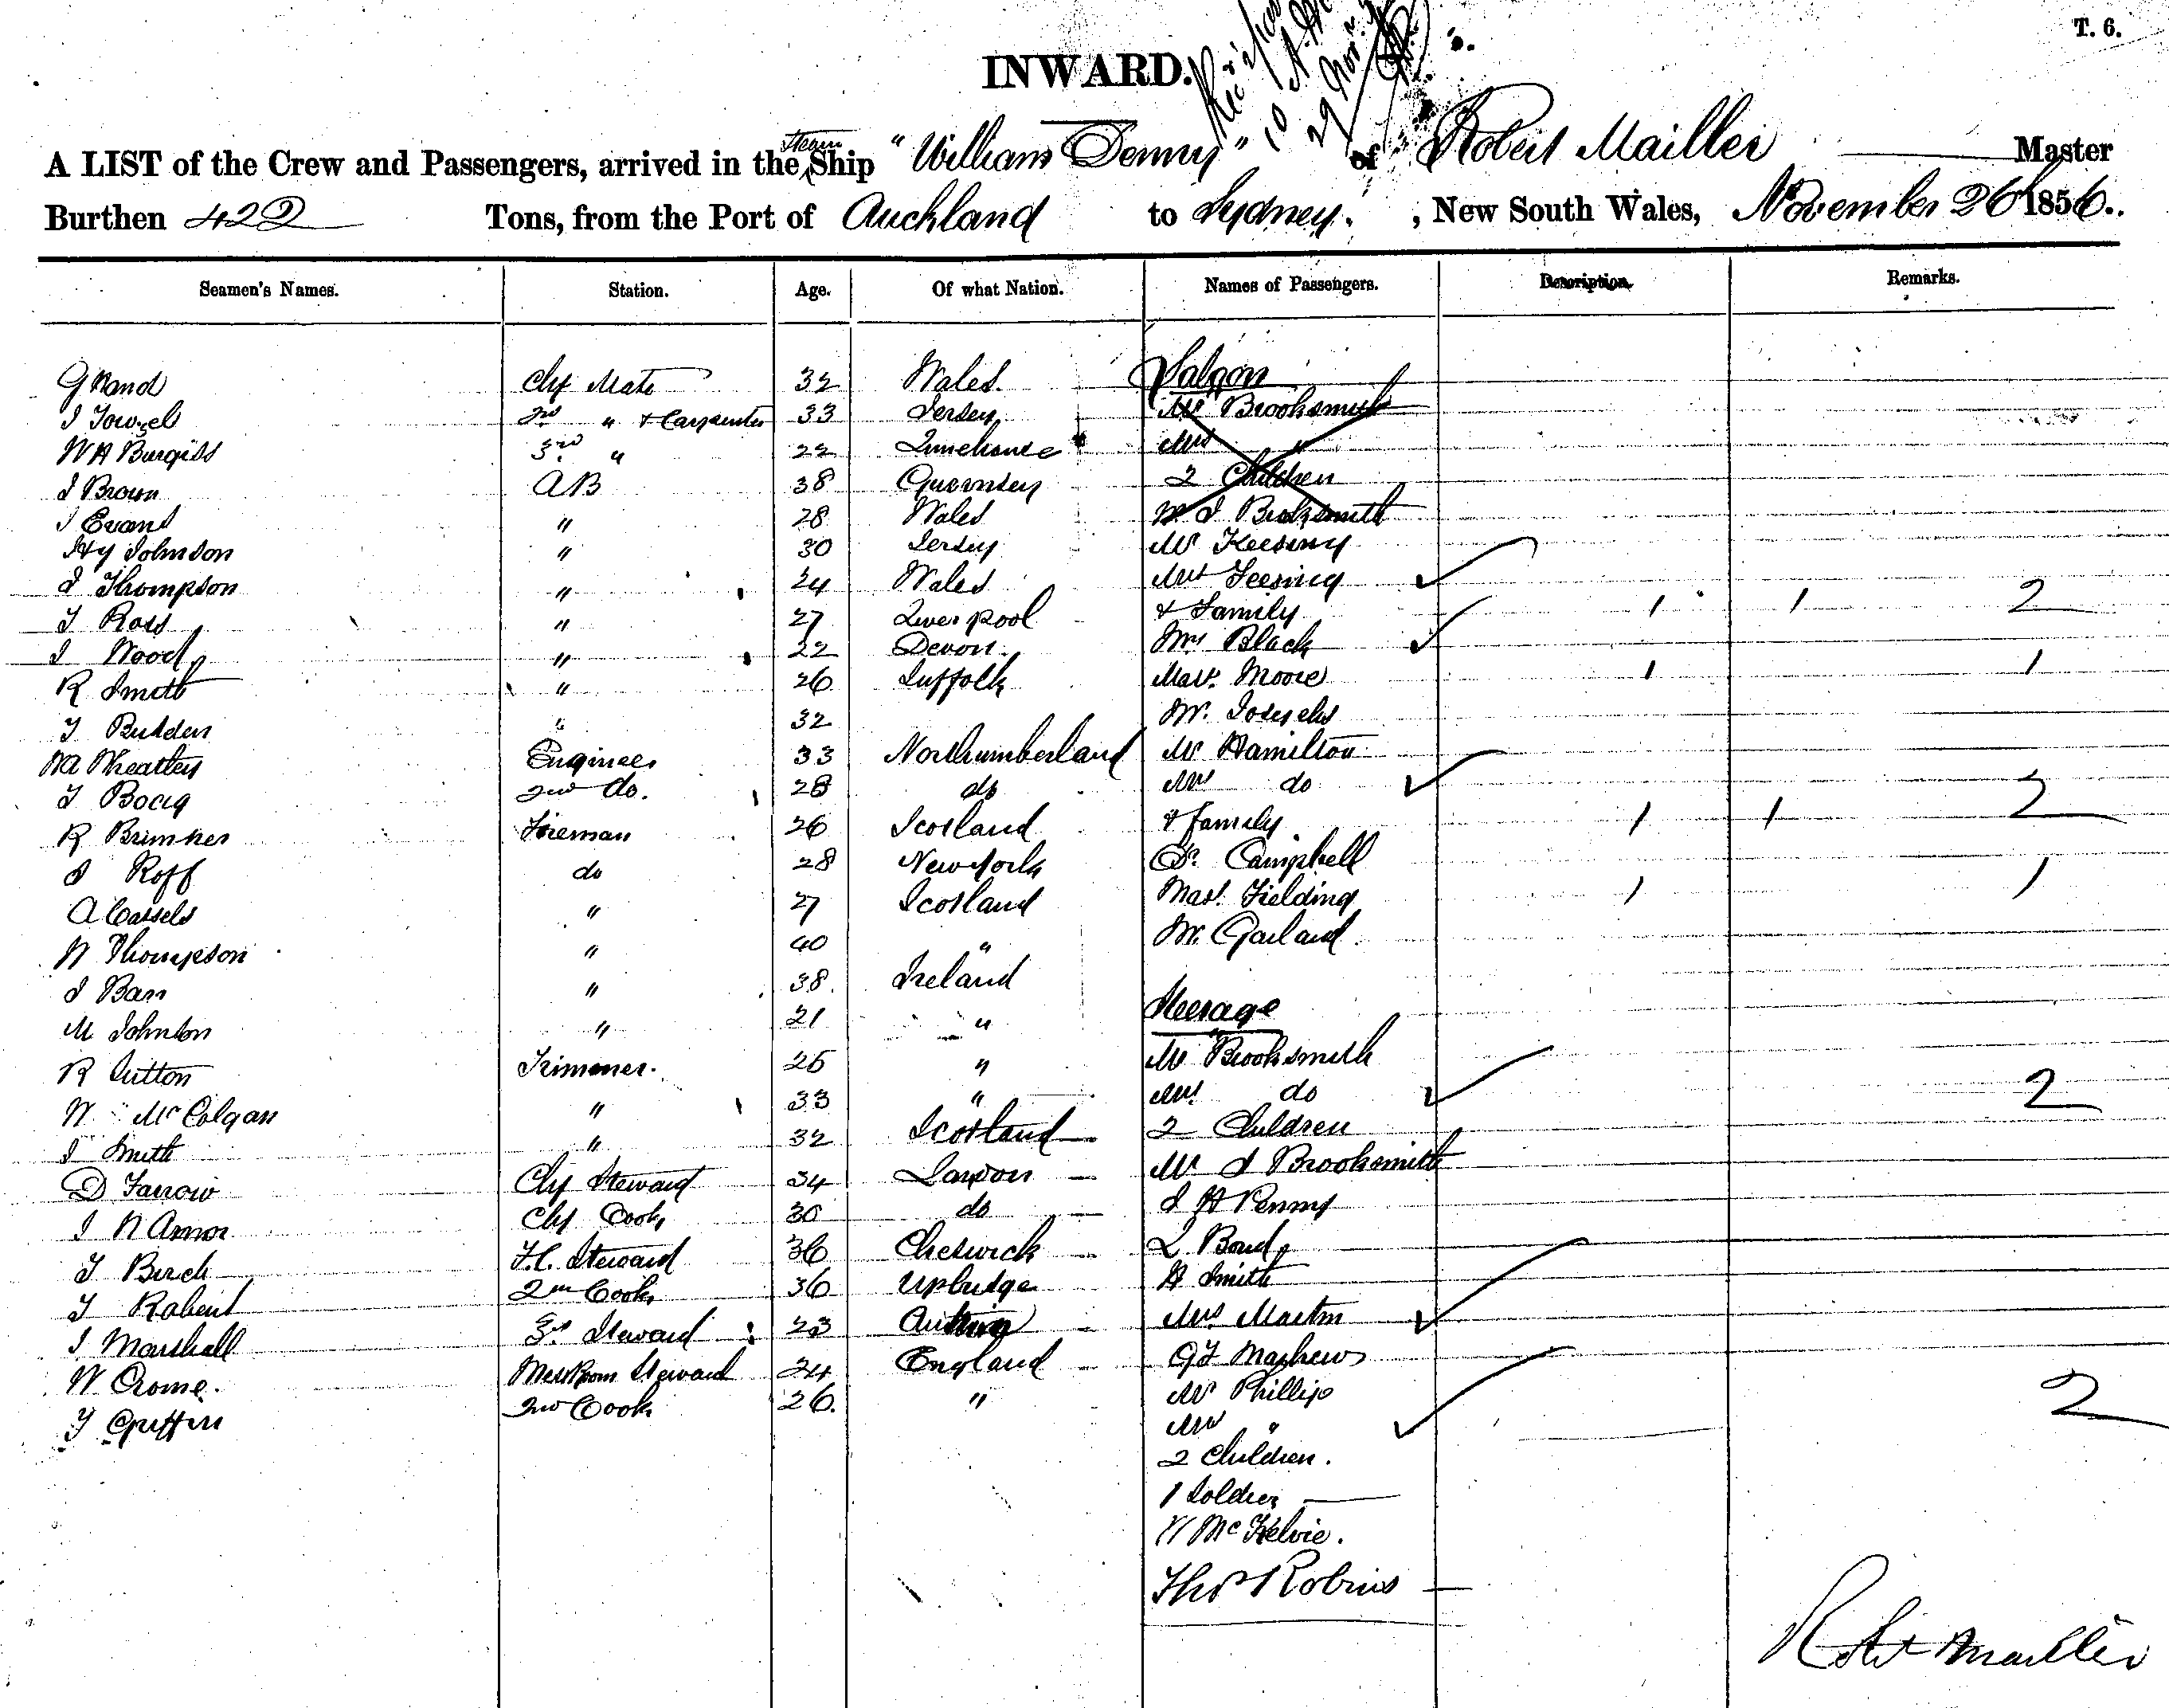 T. 6.
INWARD.
A LIST of the Crew and Passengers, arrived in the Steam Ship "William Denny" of Robert Mailler Master
Burthen 422 Tons, from the Port of Auckland to Sydney. , New South Wales, November 26th 1856.
Seamen's Names. Station. Age. Of what Nation. Names of Passengers. Description. Remarks.
Saloon
G Rand Chf Mate 32 Wales.
J Towzel 2nd " & Carpenter 33 Jersey Mr Brooksmith
W A Burgiss 3rd " 22 Limehouse Mrs "
J Brown AB 38 Guernsey 2 Children
J Evans " 28 Wales J Brooksmith
Hy Johnson " 30 Jersey Mr Keesing
J Thompson " 24 Wales Mrs Keesing
T Ross " 27 Liverpool & Family 1 1 2
J Wood " 22 Devon. Mrs Black
R Smith " 26 Suffolk Mast. Moore 1 1
T Budden " 32 Mr. Josephs
Wm Wheatley Engineer 33 Northumberland Mr Hamilton
T Boag 2nd do. 28 do Mrs do
R Brimner Fireman 26 Scotland & family 1 1 2
J Roff do 28 New York Dr. Campbell
A Cassels " 27 Scotland Mast. Fielding 1 1
W Thompson " 40 " Mr. Garland
J Barr " 38. Ireland
M Johnson " 21 " Steerage
R Sutton Trimmer. 25 " Mr Brooksmith
W McColgan " 33 " Mrs do 2
J Smith " 32 Scotland 2 Children
D Farrow Chf Steward 34 London Mr J Brooksmith
J N Amor Chf Cook 30 do J H Penny
T Birch F.C. Steward 36 Cheswick L Bond
T 2nd Cook 36 Uxbridge H Smith
J Marshall 3rd Steward 23 Mrs Martin
W Crome. Mess Room Steward 24 England G F Mayhew
T Griffin 2nd Cook 26. " Mr Phillips 2
Mrs "
2 Children.
1 Soldier
W McKelvie.
Thos Robins
Robt Mailler